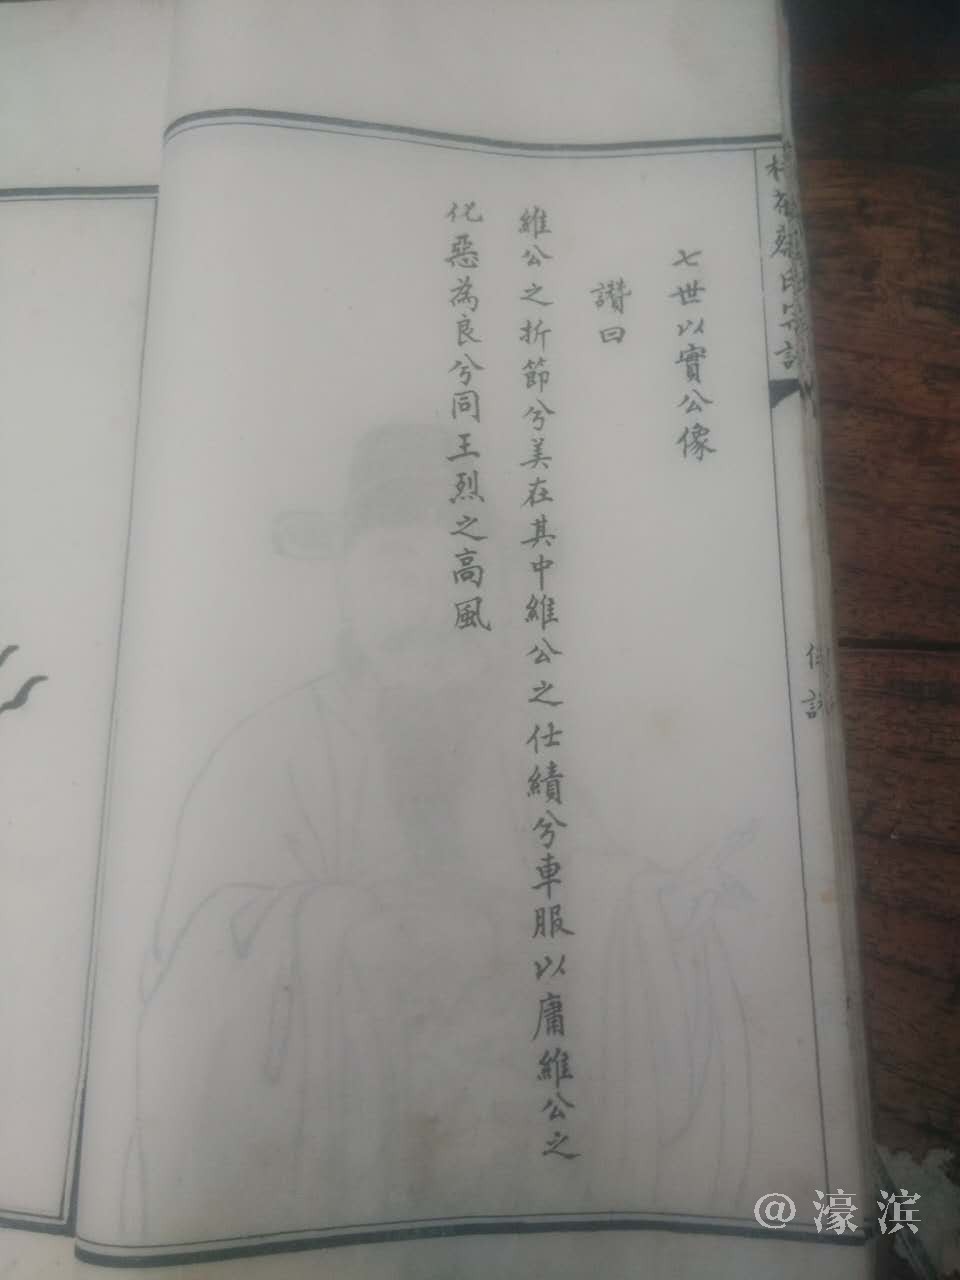 七世以實公像
讚曰
維公之折節兮美在其中維公之仕績兮車服以庸維公之
化惡為良兮同王烈之高風
氏宗譜
像
@濠滨